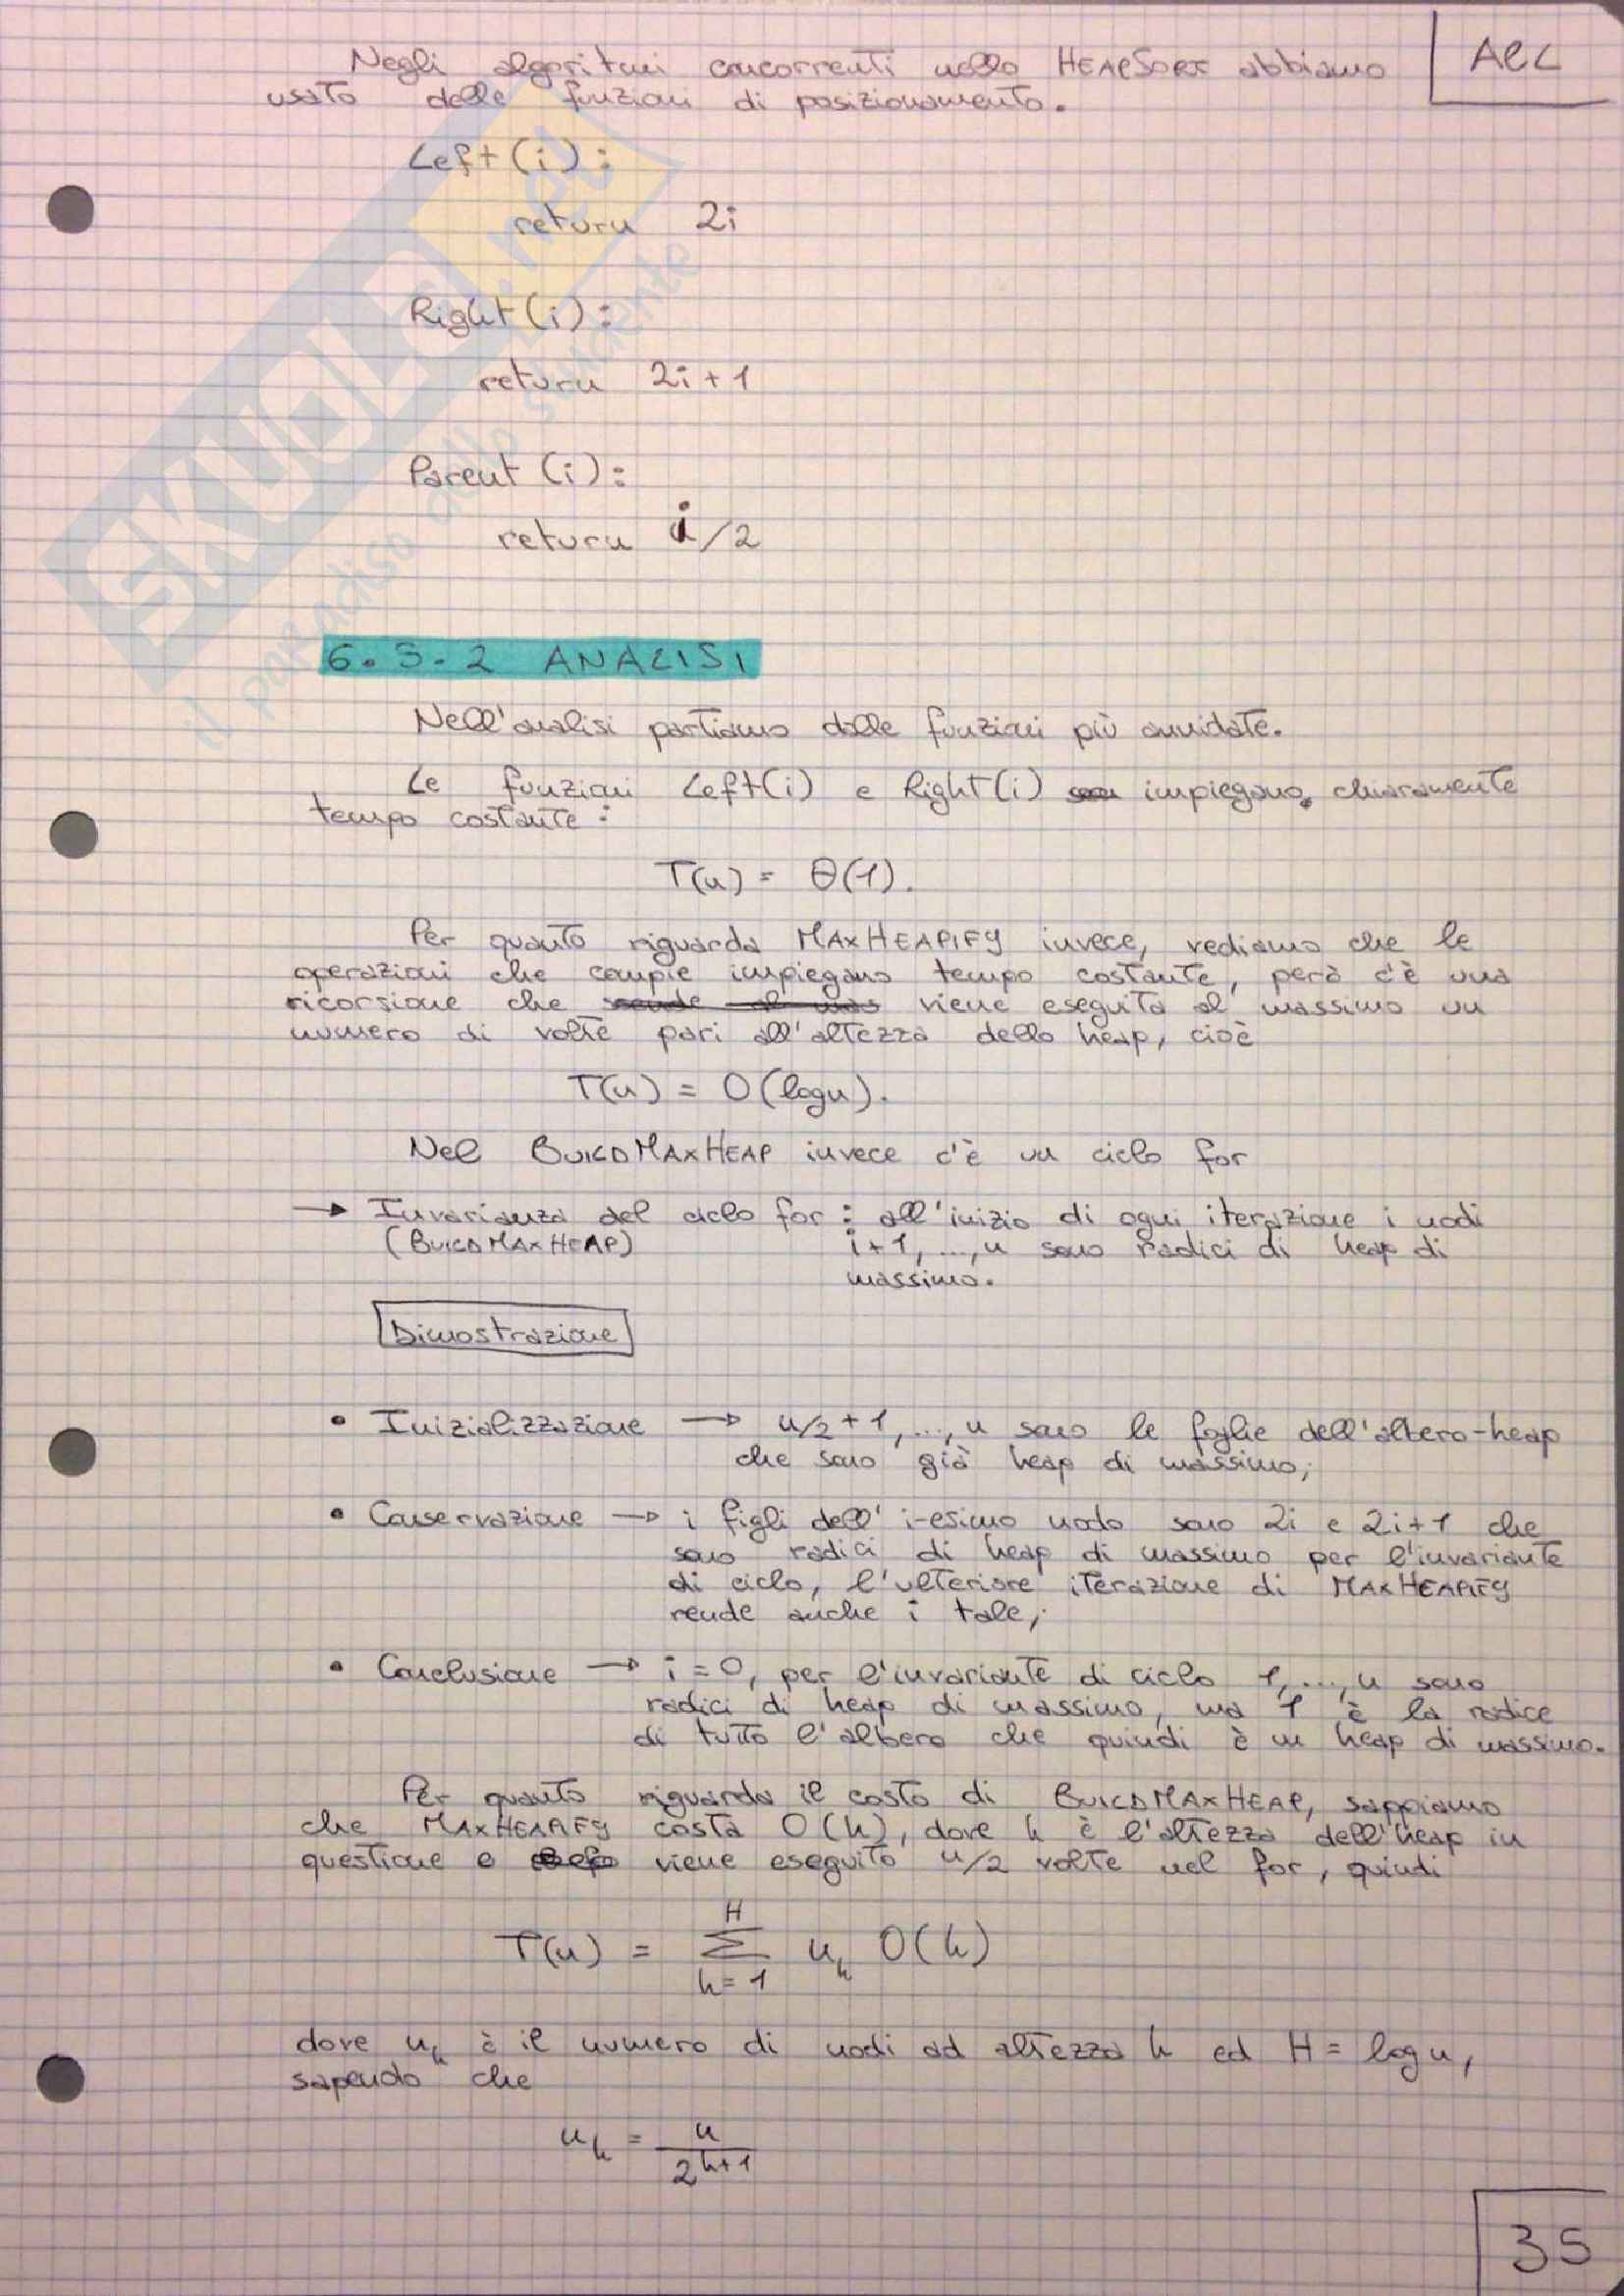 Negli algoritmi concorrenti nello HEAPSORT abbiamo
usato delle funzioni di posizionamento.
AeL
Left(i):
return 2i
Right(i):
return 2i+1
Parent (i):
return i/2
6.3.2 ANALISI
Nell'analisi partiamo dalle funzioni più annidate.
Le funzioni Left(i) e Right(i) impiegano chiaramente
tempo costante:
T(n) = Θ(1).
Per quanto riguarda MAXHEAPIFY invece, vediamo che le
operazioni che compie impiegano tempo costante, però c'è una
ricorsione che viene eseguita al massimo un
numero di volte pari all'altezza dello heap, cioè
T(n) = O(logn).
Nel BUILDMAXHEAP invece c'è un ciclo for
→ Invarianza del ciclo for: all'inizio di ogni iterazione i nodi
(BUILDMAXHEAP) i+1, ..., n sono radici di heap di
massimo.
Dimostrazione
• Inizializzazione → n/2+1, ..., n sono le foglie dell'albero-heap
che sono già heap di massimo;
• Conservazione → i figli dell' i-esimo nodo sono 2i e 2i+1 che
sono radici di heap di massimo per l'invariante
di ciclo, l'ulteriore iterazione di MAXHEAPIFY
rende anche i tale;
• Conclusione → i=0, per l'invariante di ciclo 1, ..., n sono
radici di heap di massimo, ma 1 è la radice
di tutto l'albero che quindi è un heap di massimo.
Per quanto riguarda il costo di BUILDMAXHEAP, sappiamo
che MAXHEAPIFY costa O(h), dove h è l'altezza dell'heap in
questione e viene eseguito n/2 volte nel for, quindi
T(n) = Σ_{h=1}^{H} n_h O(h)
dove n_h è il numero di nodi ad altezza h ed H = log n,
sapendo che
n_h = n / 2^{h+1}
35
SKUOLA.net
il paradiso dello studente